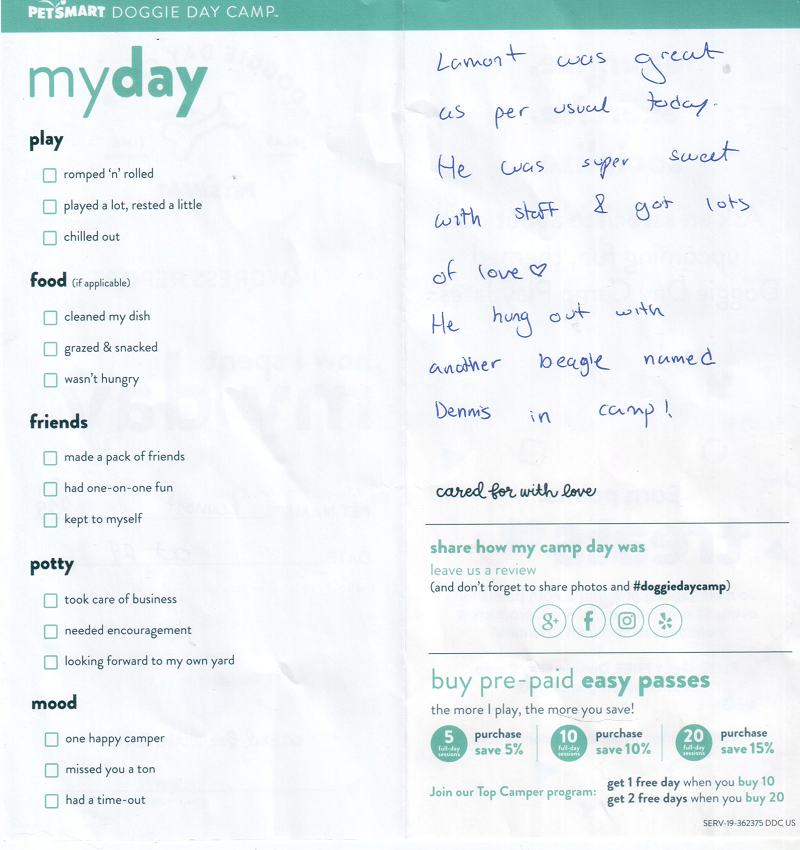 PETSMART DOGGIE DAY CAMP™
myday
play
romped 'n' rolled
played a lot, rested a little
chilled out
food (if applicable)
cleaned my dish
grazed & snacked
wasn't hungry
friends
made a pack of friends
had one-on-one fun
kept to myself
potty
took care of business
needed encouragement
looking forward to my own yard
mood
one happy camper
missed you a ton
had a time-out
Lamont was great
as per usual today.
He was super sweet
with staff & got lots
of love ♡
He hung out with
another beagle named
Dennis in camp!
cared for with love
share how my camp day was
leave us a review
(and don't forget to share photos and #doggiedaycamp)
g+ f
buy pre-paid easy passes
the more I play, the more you save!
5 full-day sessions purchase save 5%
10 full-day sessions purchase save 10%
20 full-day sessions purchase save 15%
Join our Top Camper program: get 1 free day when you buy 10
get 2 free days when you buy 20
SERV-19-362375 DDC US